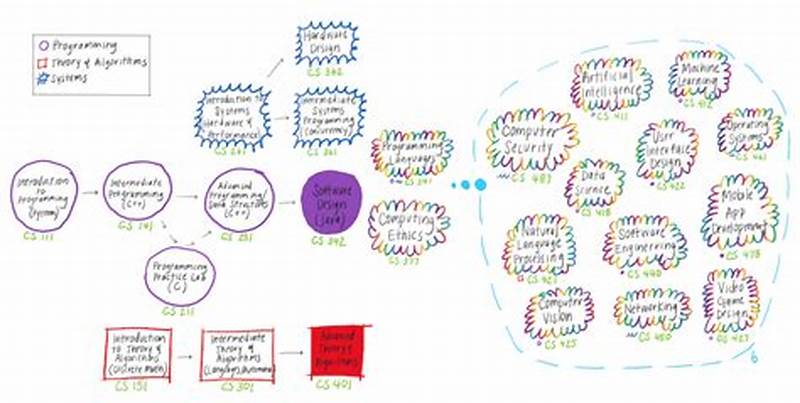 Programming
Theory & Algorithms
Systems
Hardware
Design
CS 362
Introduction to
Systems
(Hardware &
Performance)
CS 261
Intermediate
Systems
Programming
(Concurrency)
CS 361
Introduction
to
Programming
CS 111
Intermediate
Programming
(C++)
CS 141
Advanced
Programming/
Data Structures
(C++)
CS 251
Software
Design
(Java)
CS 342
Programming
Practice Lab
(C)
CS 211
Introduction
to Theory of
Algorithms
(Discrete Math)
CS 151
Intermediate
Theory of
Algorithms
CS 301
Advanced
Theory of
Algorithms
CS 401
Programming
Languages
CS 341
Computing
Ethics
CS 377
Artificial
Intelligence
CS 411
Machine
Learning
CS 412
Computer
Security
CS 487
User
Interface
Design
CS 422
Operating
Systems
CS 461
Data
Science
CS 418
Mobile
App
Development
CS 478
Natural
Language
Processing
CS 421
Software
Engineering
CS 440
Computer
Vision
CS 425
Networking
CS 450
Video
Game
Design
CS 427
6